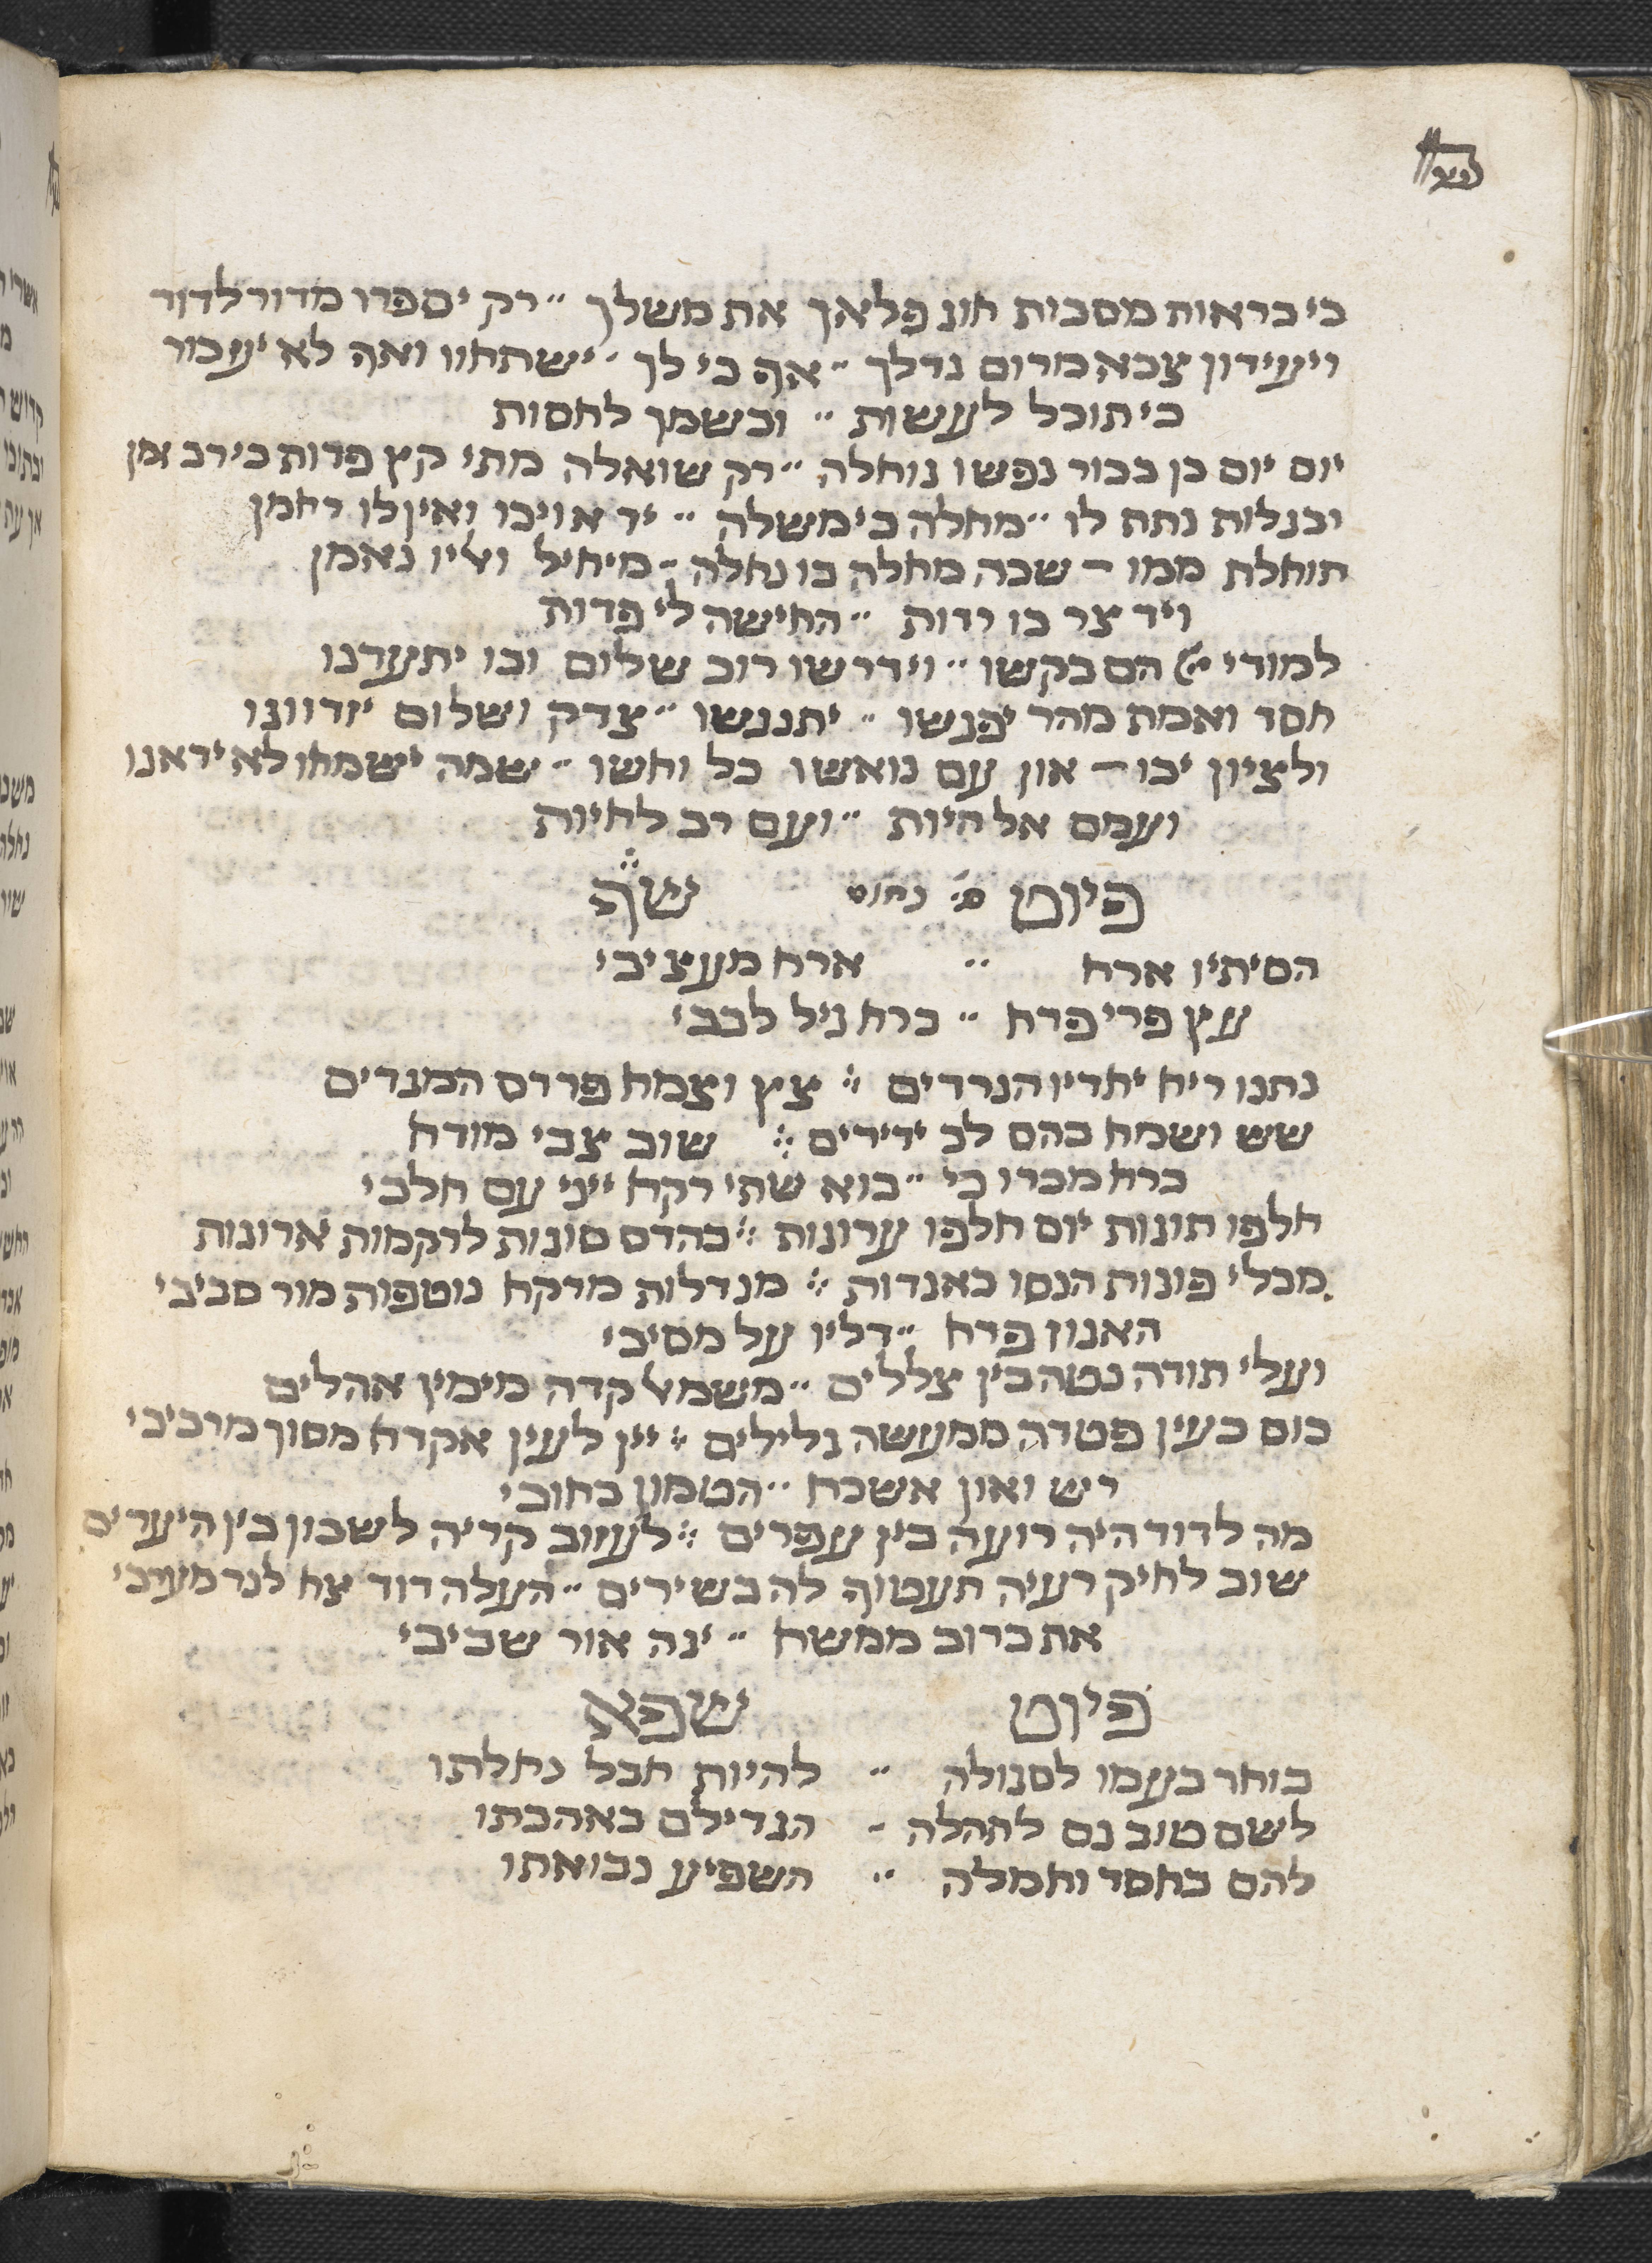 כי בראות מסבות חוג פלאך את משלך ״ רק יספרו מדור לדור
ויעידון צבא מרום גדלך ״ אף כי לך ״ ישתחוו ואף לא יעבור
כי תוכל לעשות ״ ובשמך לחסות
יום יום בן בכור נפשו נוחלה ״ רק שואלה מתי קץ פדות כי רב זמן
ובגלות נתת לו ״ מחלה כי משלה ״ יד אויבו ואין לו רחמן
תוחלת ממו – שכה מחלה בו נחלה – מיחיל ועליו נאמן
ויד צר בו רדות ״ החישה לי פדות
למודי הם בקשו ״ וידרשו רוב שלום ובו יתערבו
חסד ואמת מהר יפגשו ״ יתנגשו ״ צדק ושלום יזדווגו
ולציון יבו – און עם נואשו כל וחשו ״ שמה ישמחו לא ידאגו
ועמם אל היות ״ ועם רב לחיות
פיוט שף
הסיתיו ארח ״ ארח מעציבי
עץ פרי פרח ״ ברח גיל לבבי
נתנו ריח יחדיו הנרדים ׃ צץ וצמח פרדס המגדים
שש ושמח בהם לב ידידים ׃ שוב צבי מודח
ברח מכרו כי ״ בוא שתי רקח ייני עם חלבי
חלפו תוגות יום חלפו ערוגות ׃ בהדס סוגות לרקמות ארוגות
מבלי פוגות הנסו באגדות ׃ מגדלות מרקח נוטפות מור סביבי
האגוז פרח ״ דליו על מסיבי
ועלי תודה נטה בין צללים ״ משמאל קדה מימין אהלים
כוס כעין פטדה ממעשה גלילים ׃ יין לעין אקרח מסוך מרביבי
ריש ואון אשכח ״ הטמון בחובי
מה לדוד היה רועה בין עפרים ׃ לעזוב קריה לשכון בין היערים
שוב לחיק רעיה תעטוף לה בשירים ״ העלה דוד צח לנר מערבי
את ברוב ממשח ״ יגה אור שביבי
פיוט שפא
בוחר בעמו לסגולה ״ להיות חבל נחלתו
לשם טוב גם לתהלה – הגדילם באהבתו
להם בחסד וחמלה ״ השפיע נבואתו